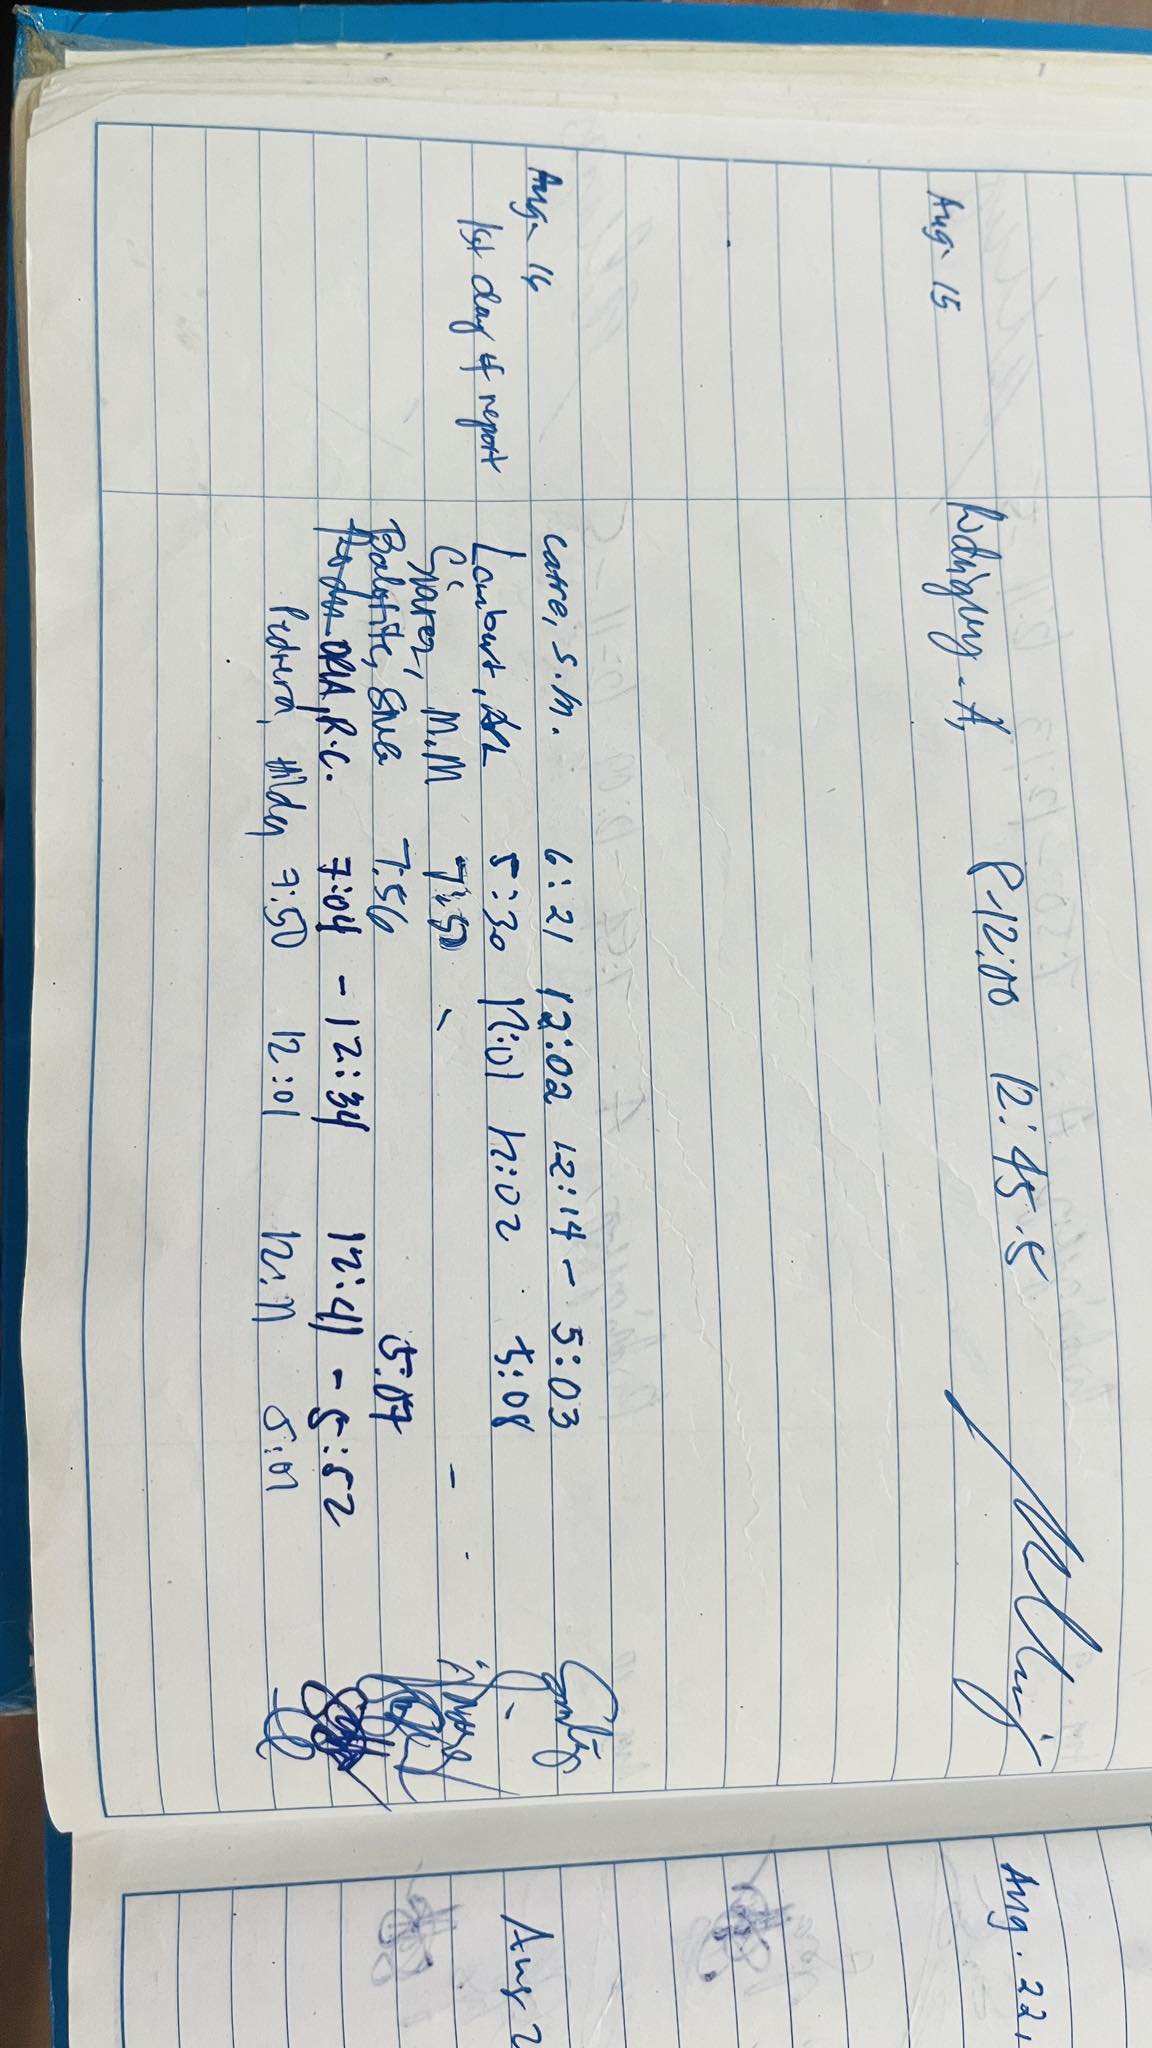 Aug. 15 A, 8-12:00 12:45-5
Aug. 16 Carre, S.M. 6:21 12:02 12:14 - 5:03
1st day of report 5:30 12:01 12:02 5:08
M.M 7:50 -
Balotite, 7:56 5:07
R.C. 7:04 - 12:34 12:41 - 5:52
Pedrera, Hilda 7:50 12:01 12:11 5:01
Aug. 22,
Aug 2